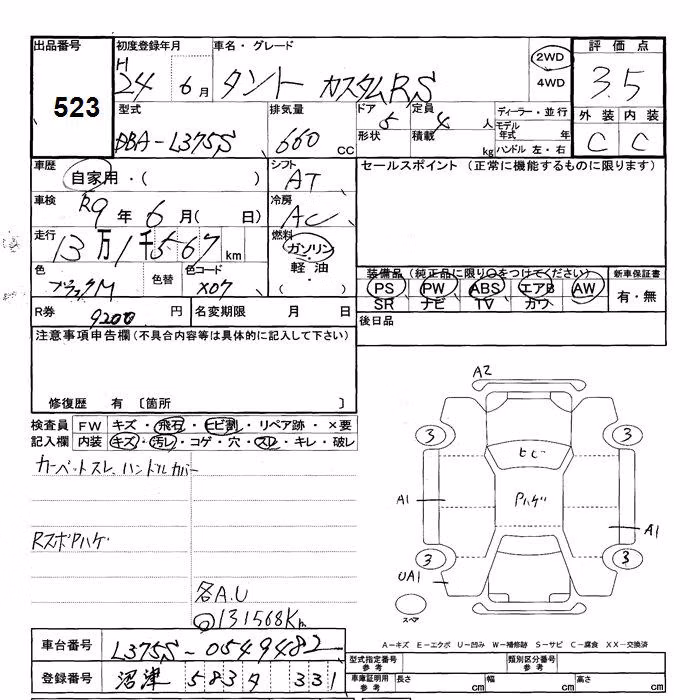 出品番号 初度登録年月 車名・グレード 評価点
523 H 24 6月 タント カスタムRS 2WD 4WD 3.5
型式 排気量 ドア 定員 ディーラー・並行 外装 内装
DBA-L375S 660 CC 5 形状 4人 積載 kg モデル年式 年 ハンドル 左・右 C C
車歴 自家用・( ) シフト AT セールスポイント (正常に機能するものに限ります)
車検 R9年 6月( 日) 冷房 AC
走行 13万1千567km 燃料 ガソリン・軽油・( )
色 ブラックM 色替 色コード X07
装備品(純正品に限り○をつけてください) 新車保証書
PS PW ABS エアB AW 有・無
SR ナビ TV カワ
R券 9200 円 名変期限 月 日 後日品
注意事項申告欄(不具合内容等は具体的に記入して下さい)
修復歴 有 〔箇所 〕
検査員 FW キズ・飛石・ヒビ割・リペア跡・×要
記入欄 内装 キズ・汚レ・コゲ・穴・スレ・キレ・破レ
カーペットスレ、ハンドルカバー
RスポPハゲ
A2
3 3
ヒビ
A1 Pハゲ A1
3 3
UA1
スペア
名A.U
131568Km
A-キズ E-エクボ U-凹み W-補修跡 S-サビ C-腐食 XX-交換済
車台番号 L375S-0549482
登録番号 沼津 583 331
型式指定番号 参考 類別区分番号 参考
車庫証明用 参考 長さ cm 幅 cm 高さ cm